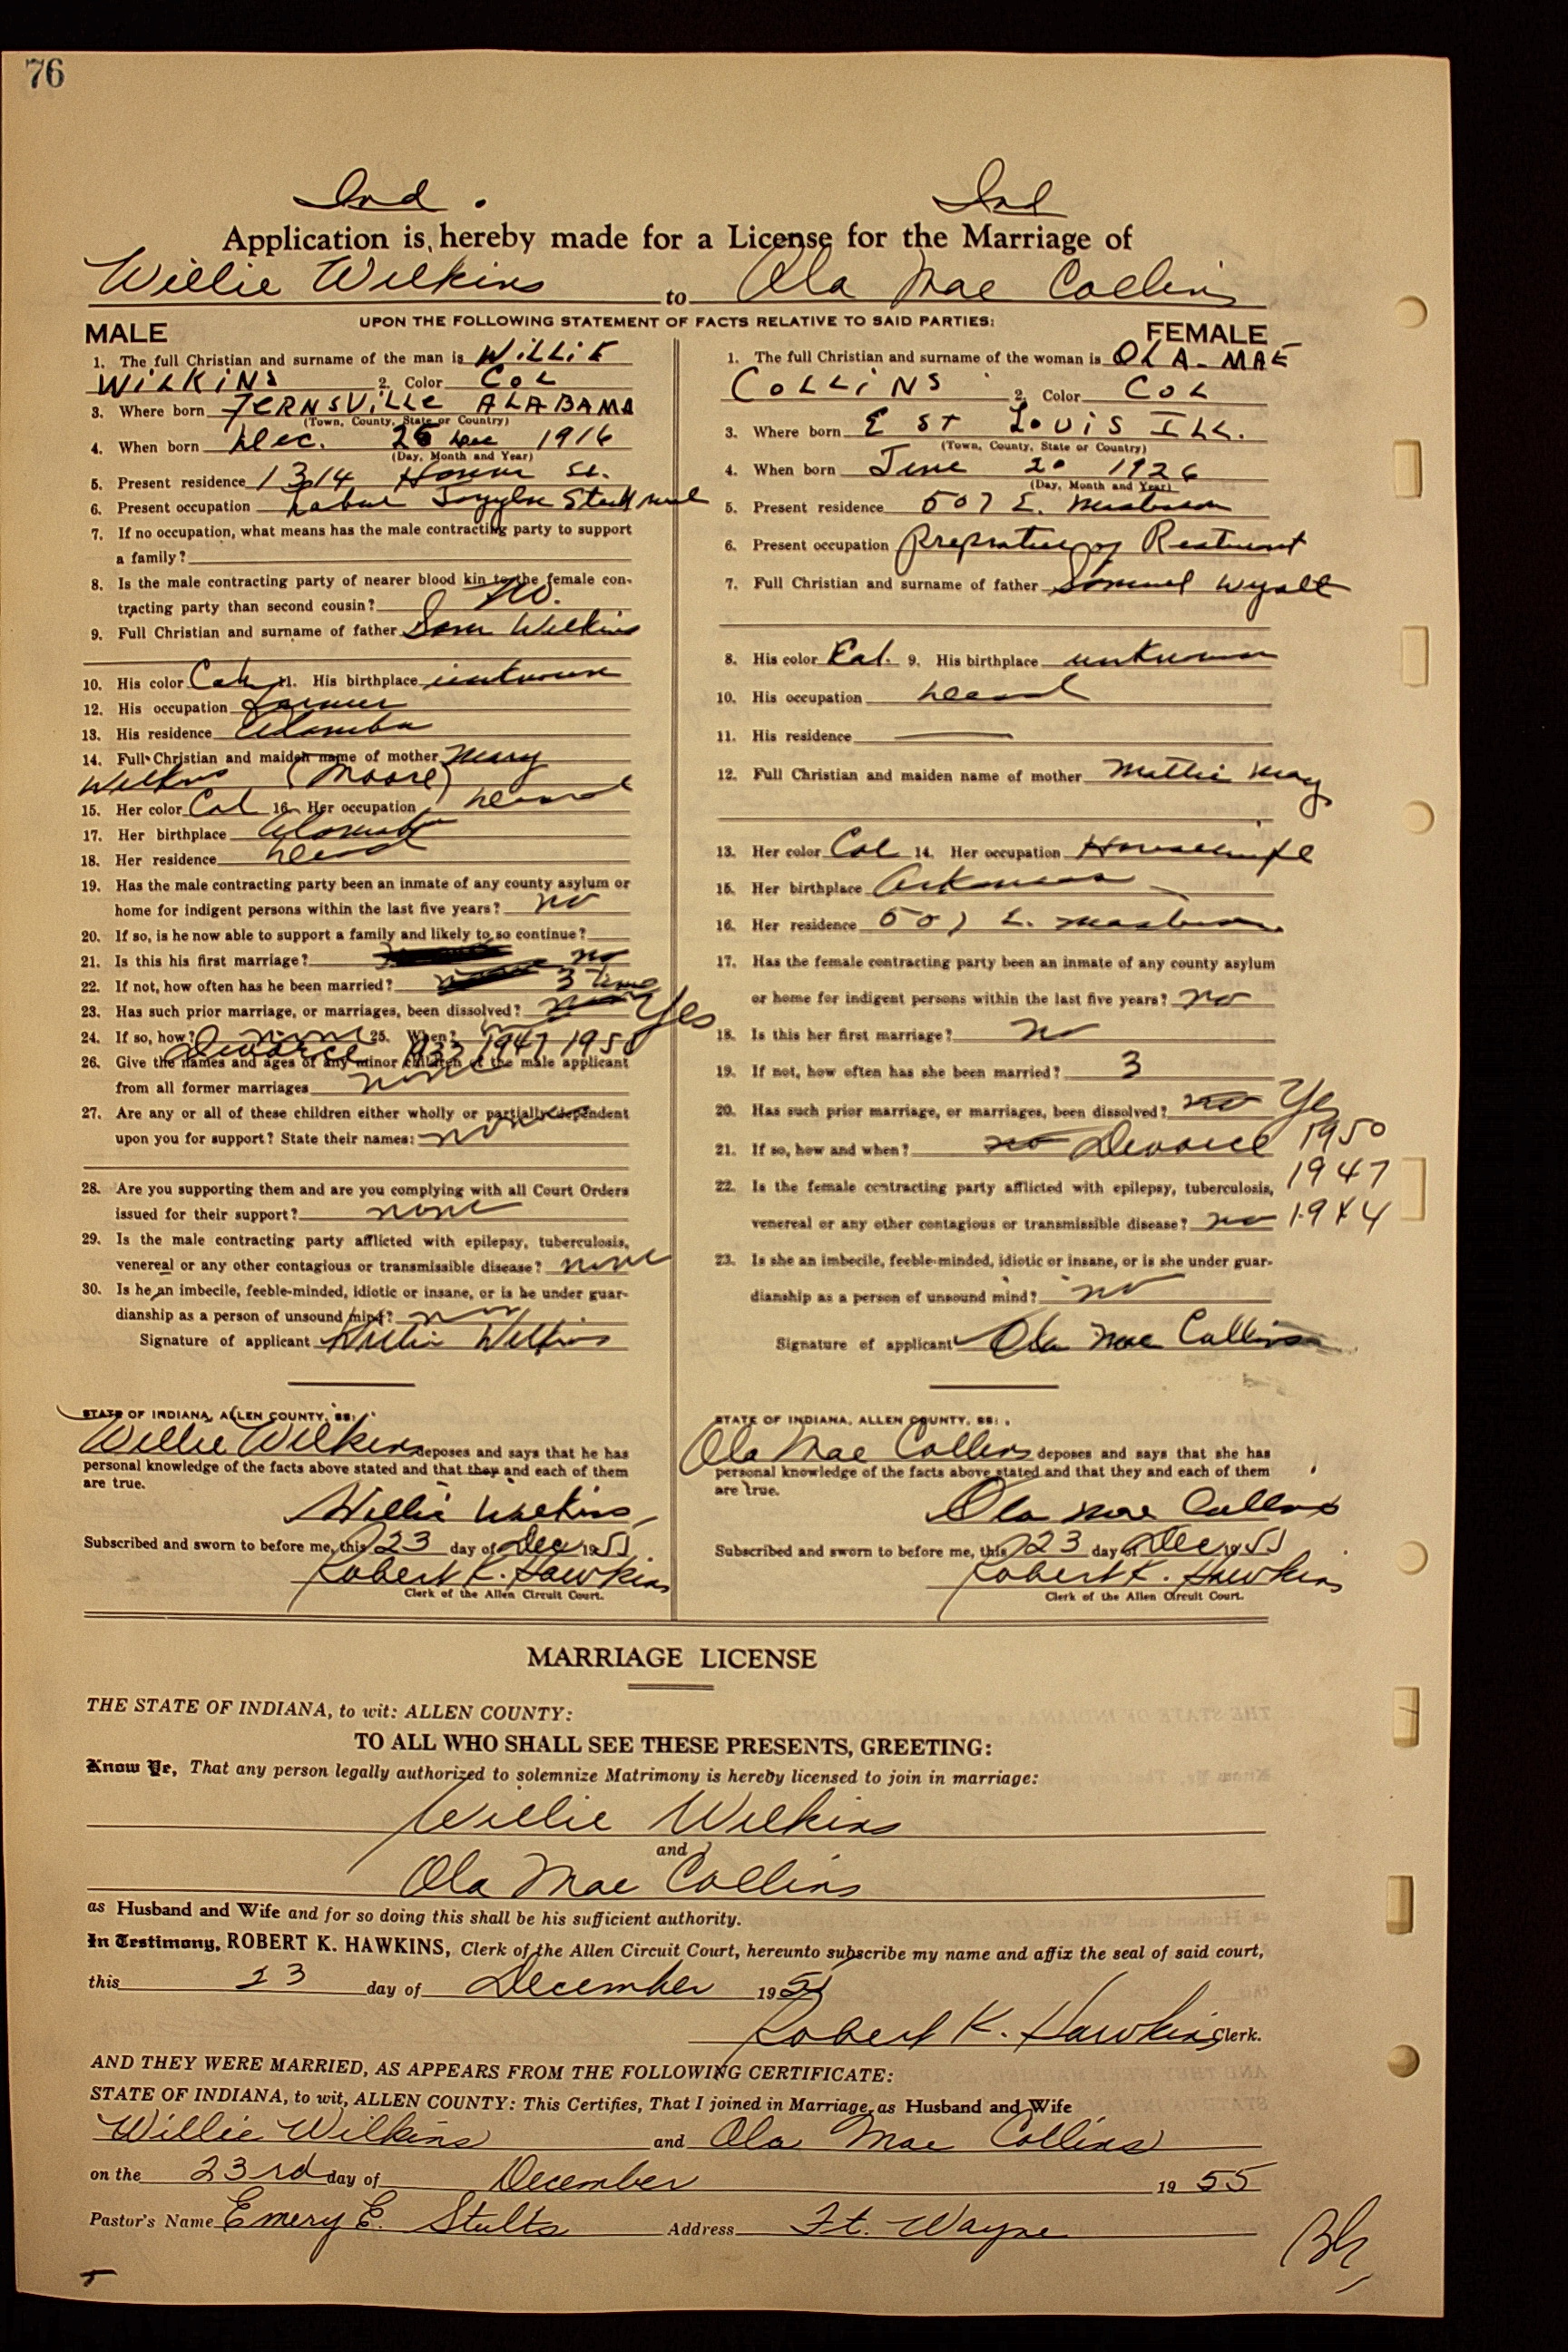 76
Ind. Ind
Application is hereby made for a License for the Marriage of
Willie Wilkins to Ola Mae Collins
UPON THE FOLLOWING STATEMENT OF FACTS RELATIVE TO SAID PARTIES:
MALE
1. The full Christian and surname of the man is WILLIE
WILKINS 2. Color COL
3. Where born FERNSVILLE ALABAMA
(Town, County, State or Country)
4. When born Dec. 26 1916
(Day, Month and Year)
5. Present residence 1314 St.
6. Present occupation Labor
7. If no occupation, what means has the male contracting party to support
a family?
8. Is the male contracting party of nearer blood kin to the female con-
tracting party than second cousin? no.
9. Full Christian and surname of father Sam Wilkins
10. His color Col 11. His birthplace unknown
12. His occupation Farmer
13. His residence Alamba
14. Full Christian and maiden name of mother Mary
Wilkins (Moore)
15. Her color Col 16. Her occupation
17. Her birthplace
18. Her residence
19. Has the male contracting party been an inmate of any county asylum or
home for indigent persons within the last five years? no
20. If so, is he now able to support a family and likely to so continue?
21. Is this his first marriage? no
22. If not, how often has he been married? 3 time
23. Has such prior marriage, or marriages, been dissolved? Yes
24. If so, how? none 25. When?
Divorce 1947 1950
26. Give the names and ages of any minor children of the male applicant
from all former marriages none
27. Are any or all of these children either wholly or partially dependent
upon you for support? State their names: none
28. Are you supporting them and are you complying with all Court Orders
issued for their support? none
29. Is the male contracting party afflicted with epilepsy, tuberculosis,
venereal or any other contagious or transmissible disease? none
30. Is he an imbecile, feeble-minded, idiotic or insane, or is he under guar-
dianship as a person of unsound mind? no
Signature of applicant Willie Wilkins
STATE OF INDIANA, ALLEN COUNTY, SS:
Willie Wilkins deposes and says that he has
personal knowledge of the facts above stated and that they and each of them
are true.
Willie Wilkins
Subscribed and sworn to before me, this 23 day of Dec 1955
Robert K. Hawkins
Clerk of the Allen Circuit Court.
FEMALE
1. The full Christian and surname of the woman is OLA-MAE
COLLINS 2. Color COL
3. Where born E ST LOUIS ILL.
(Town, County, State or Country)
4. When born June 20 1926
(Day, Month and Year)
5. Present residence 507 E.
6. Present occupation
7. Full Christian and surname of father Samuel Wyatt
8. His color Col. 9. His birthplace unknown
10. His occupation
11. His residence
12. Full Christian and maiden name of mother Mattie May
13. Her color Col 14. Her occupation Housewife
15. Her birthplace Arkansas
16. Her residence 507 E.
17. Has the female contracting party been an inmate of any county asylum
or home for indigent persons within the last five years? no
18. Is this her first marriage? no
19. If not, how often has she been married? 3
20. Has such prior marriage, or marriages, been dissolved? no Yes
21. If so, how and when? no Divorce 1950
1947
22. Is the female contracting party afflicted with epilepsy, tuberculosis,
venereal or any other contagious or transmissible disease? no 1944
23. Is she an imbecile, feeble-minded, idiotic or insane, or is she under guar-
dianship as a person of unsound mind? no
Signature of applicant Ola Mae Collins
STATE OF INDIANA, ALLEN COUNTY, SS:
Ola Mae Collins deposes and says that she has
personal knowledge of the facts above stated and that they and each of them
are true.
Ola Mae Collins
Subscribed and sworn to before me, this 23 day of Dec 1955
Robert K. Hawkins
Clerk of the Allen Circuit Court.
MARRIAGE LICENSE
THE STATE OF INDIANA, to wit: ALLEN COUNTY:
TO ALL WHO SHALL SEE THESE PRESENTS, GREETING:
Know Ye, That any person legally authorized to solemnize Matrimony is hereby licensed to join in marriage:
Willie Wilkins
and
Ola Mae Collins
as Husband and Wife and for so doing this shall be his sufficient authority.
In Testimony, ROBERT K. HAWKINS, Clerk of the Allen Circuit Court, hereunto subscribe my name and affix the seal of said court,
this 23 day of December 1955
Robert K. Hawkins Clerk.
AND THEY WERE MARRIED, AS APPEARS FROM THE FOLLOWING CERTIFICATE:
STATE OF INDIANA, to wit, ALLEN COUNTY: This Certifies, That I joined in Marriage as Husband and Wife
Willie Wilkins and Ola Mae Collins
on the 23rd day of December 1955
Pastor's Name Emery E. Stults Address Ft. Wayne